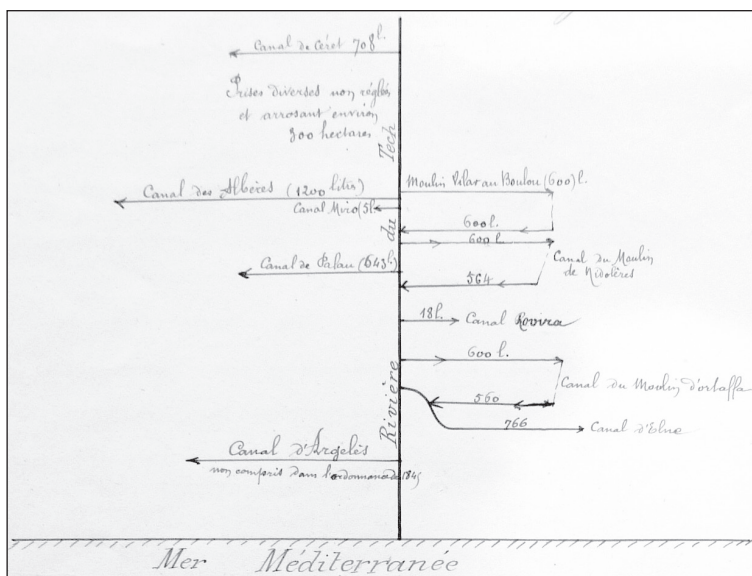 Canal de Céret 708 l.
Prises diverses non réglées
et arrosant environ
300 hectares
Rivière du Tech
Canal des Albères (1200 litres)
Moulin Vilar au Boulou (600) l.
Canal Miro (5 l.
600 l.
600 l.
Canal de Palau (643 l.)
Canal du Moulin
de Nidolères
564
18 l. Canal Rovira
600 l.
Canal du Moulin d'ortaffa
560
766 Canal d'Elne
Canal d'Argelès
non compris dans l'ordonnance de 1845
Mer Méditerranée